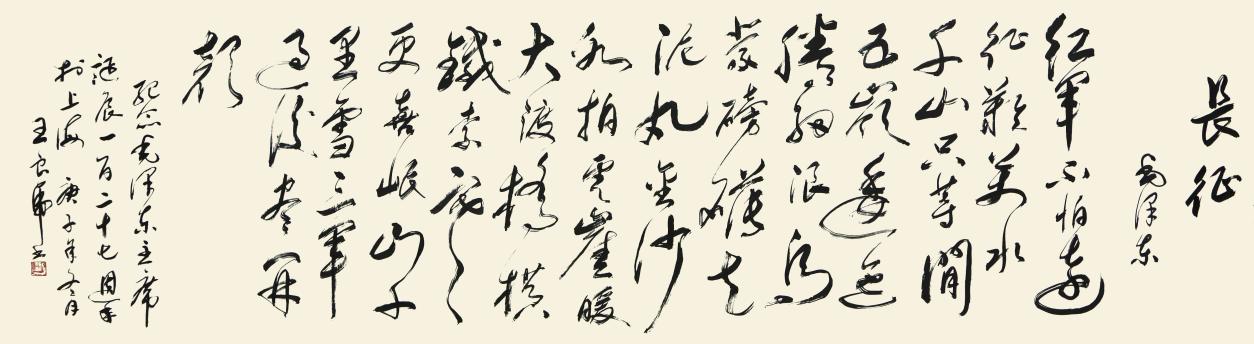 長征
毛澤东
紅軍不怕遠
征難萬水
千山只等閒
五嶺逶迤
騰細浪烏
蒙磅礴走
泥丸金沙
水拍雲崖暖
大渡橋横
鐵索寒
更喜岷山千
里雪三軍
過後盡開
顏
紀念毛澤东主席
誕辰一百二十七周年
於上海 庚子年冬月
王良虎书